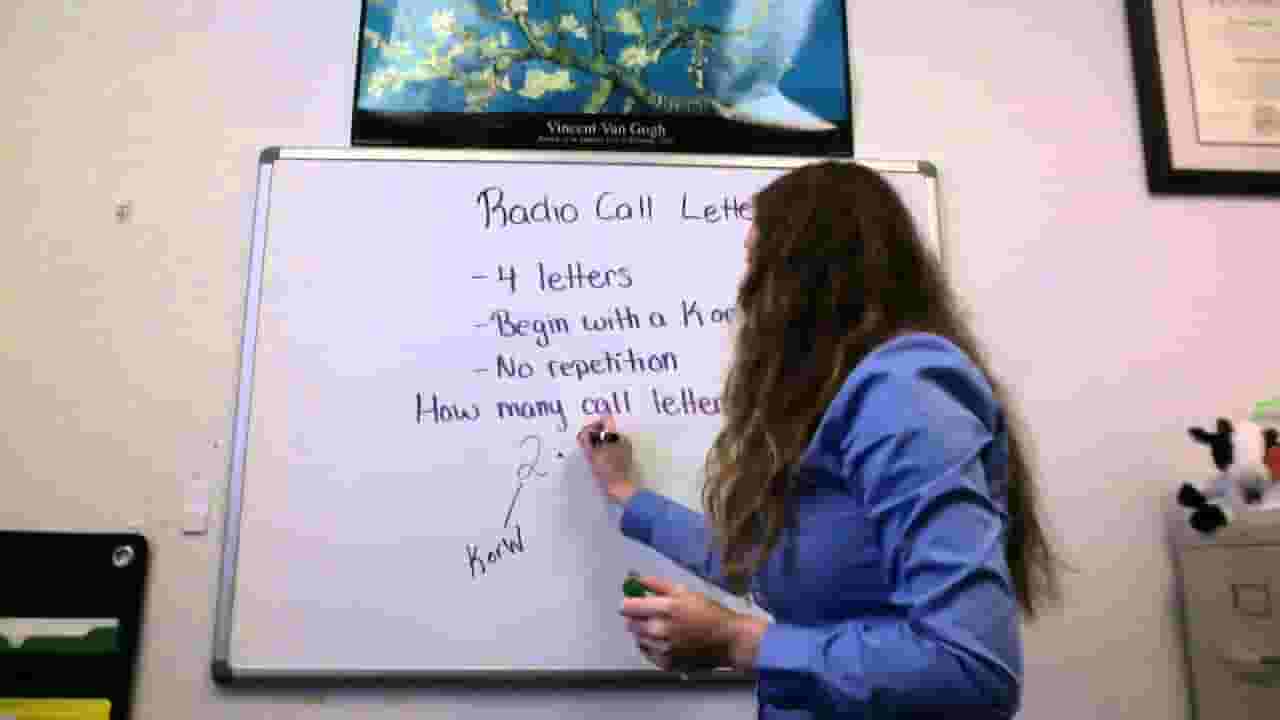 Vincent Van Gogh
Radio Call Lette
- 4 letters
- Begin with a K or
- No repetition
How many call letter
2 ·
K or W